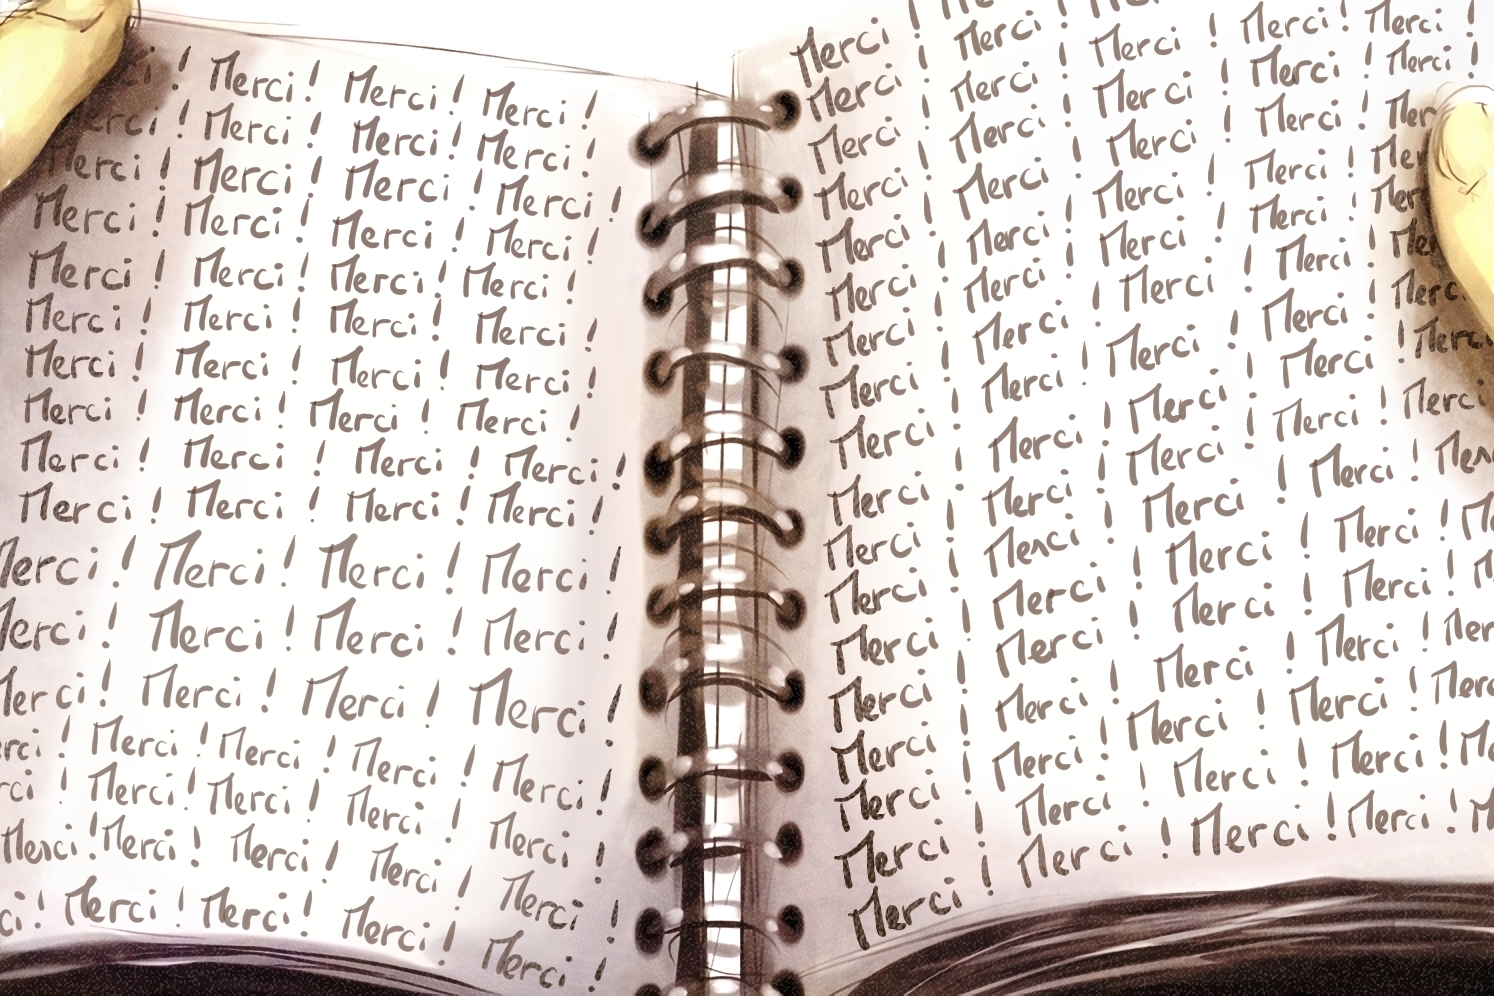 ci ! Merci ! Merci ! Merci !
erci ! Merci ! Merci ! Merci !
Merci ! Merci ! Merci ! Merci !
Merci ! Merci ! Merci ! Merci !
Merci ! Merci ! Merci ! Merci !
Merci ! Merci ! Merci ! Merci !
Merci ! Merci ! Merci ! Merci !
Merci ! Merci ! Merci ! Merci !
Merci ! Merci ! Merci ! Merci !
Merci ! Merci ! Merci ! Merci !
Merci ! Merci ! Merci ! Merci !
Merci ! Merci ! Merci ! Merci !
Merci ! Merci ! Merci ! Merci !
erci ! Merci ! Merci ! Merci ! Merci !
rci ! Merci ! Merci ! Merci ! Merci !
Merci ! Merci ! Merci ! Merci ! Merci !
ci ! Merci ! Merci ! Merci ! Merci !
Merci !
Merci ! Merci !
Merci ! Merci ! Merci ! Merci ! Merci !
Merci ! Merci ! Merci ! Merci ! Merci !
Merci ! Merci ! Merci ! Merci ! Mer
Merci ! Merci ! Merci ! Merci ! Mer
Merci ! Merci ! Merci ! Merci ! Mer
Merci ! Merci ! Merci ! Merci ! Me
Merci ! Merci ! Merci ! Merci ! Merc
Merci ! Merci ! Merci ! Merci ! Merci
Merci ! Merci ! Merci ! Merci ! Merci
Merci ! Merci ! Merci ! Merci ! Mer
Merci ! Merci ! Merci ! Merci ! M
Merci ! Merci ! Merci ! Merci ! M
Merci ! Merci ! Merci ! Merci ! Mer
Merci ! Merci ! Merci ! Merci ! Merc
Merci ! Merci ! Merci ! Merci ! M
Merci ! Merci ! Merci ! Merci ! M